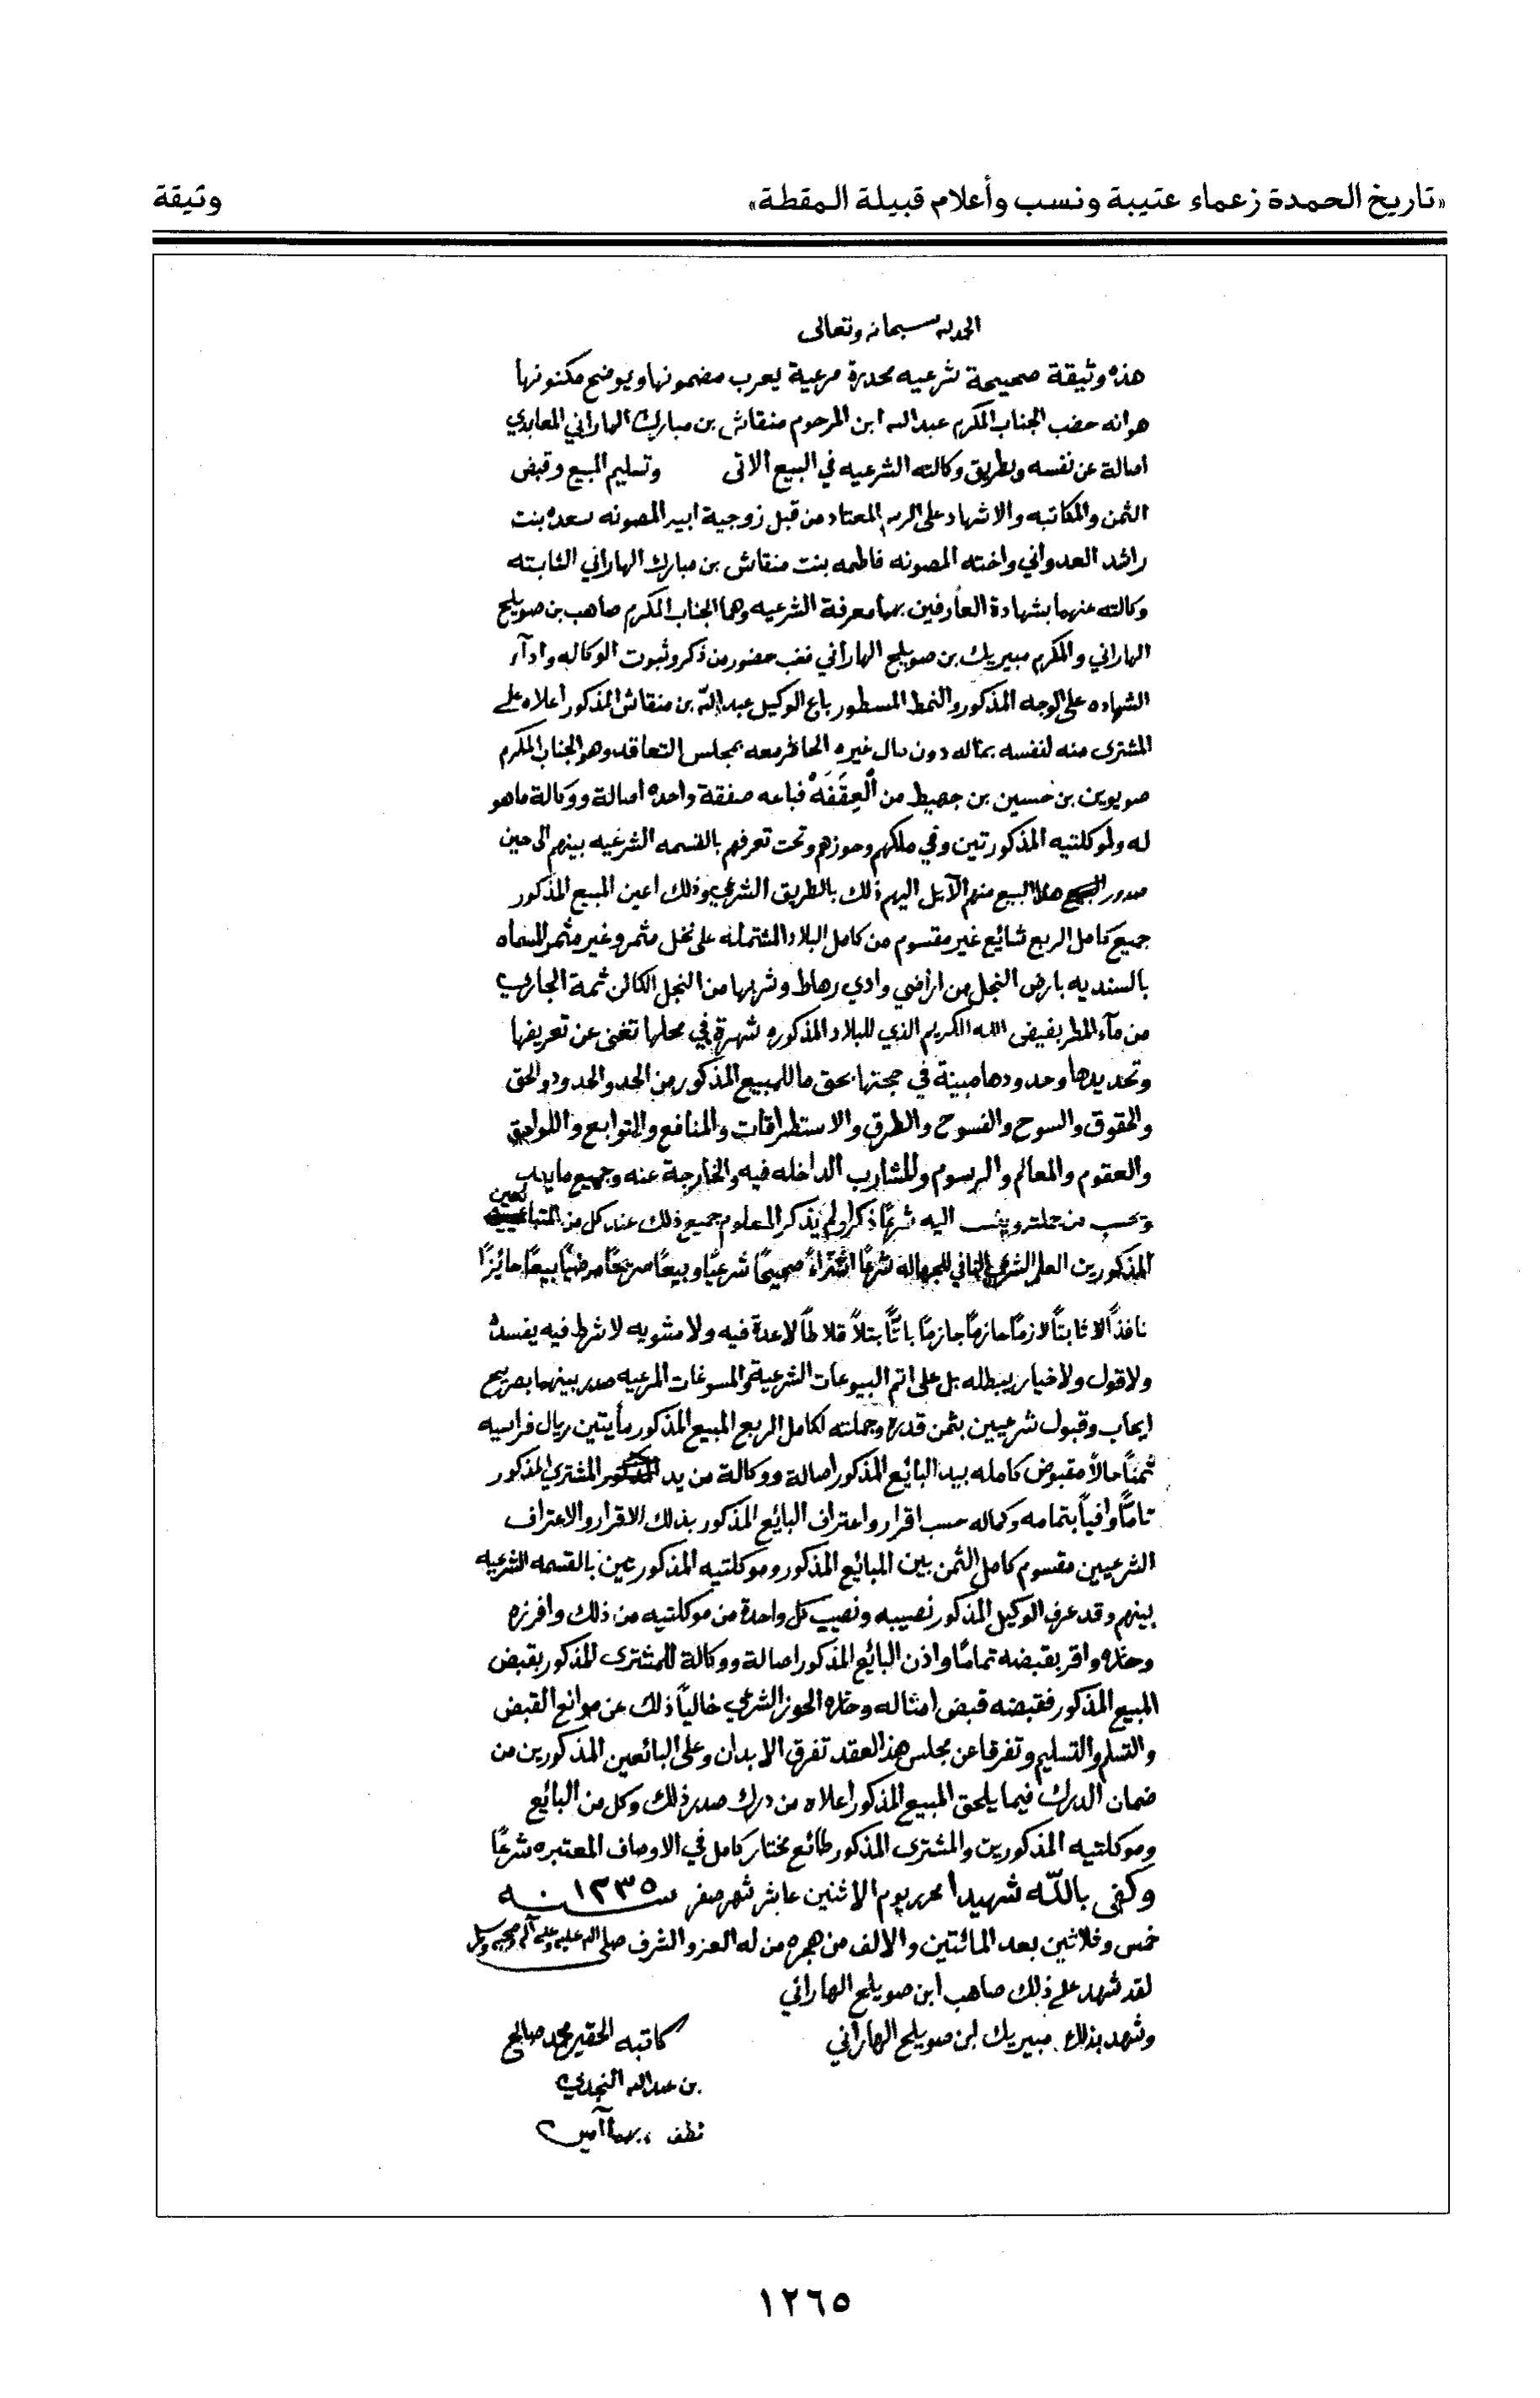 «تاريخ الحمدة زعماء عتيبة ونسب وأعلام قبيلة المقطة»
وثيقة
الحمد لله سبحانه وتعالى
هذه وثيقة صحيحة شرعيه محررة مرعية يعرب مضمونها ويوضح مكنونها
هو انه حضر الجناب المكرم عبدالله ابن المرحوم منقاش بن مبارك الهاراني المعابدي
اصالة عن نفسه وبطريق وكالته الشرعيه في البيع الاتى وتسليم المبيع وقبض
الثمن والمكاتبه والاشهاد على الرسم المعتاد من قبل زوجية ابيه المصونه سعده بنت
راشد العدواني واخته المصونه فاطمه بنت منقاش بن مبارك الهاراني الثابته
وكالته عنهما بشهادة العارفين بهما معرفة الشرعيه وهما الجناب المكرم صاهب بن صويلح
الهاراني والمكرم مبيريك بن صويلح الهاراني فغب حضور من ذكر وثبوت الوكاله وادآء
الشهاده على الوجه المذكور والنمط المسطور باع الوكيل عبدالله بن منقاش المذكور اعلاه على
المشترى منه لنفسه بماله دون مال غيره الحاظر معه بمجلس التعاقد وهو الجناب المكرم
صويوين بن حسين بن جصيط من العِقَفَهْ فباعه صفقة واحده اصالة ووكالة ماهو
له ولموكلتيه المذكورتين وفي ملكهم وحوزهم وتحت تعرفهم بالقسمه الشرعيه بينهم الى حين
صدور هذا البيع منهم الآيل اليهم ذلك بالطريق الشرعي وذلك اعين المبيع المذكور
جميع كامل الربع شائع غير مقسوم من كامل البلاد المشتمله على نخل مثمر وغير مثمر المسماه
بالسنديه بارض النجل من اراضي وادي رهاط وشربها من النجل الكائن ثمة الجاري
من مآء المطر بفيض الله الكريم الذي للبلاد المذكوره شهرة في محلها تغنى عن تعريفها
وتحديدها وحدودها مبينة في حجتها بحق ما للمبيع المذكور من الحد والحدود والحق
والحقوق والسوح والفسوح والطرق والاستطراقات والمنافع والتوابع واللواحق
والعقوم والمعالم والرسوم والمشارب الداخله فيه والخارجة عنه وجميع ما يعد
ويحسب من جملته وينسب اليه شرعًا ذكر او لم يذكر المعلوم جميع ذلك عند كل من المتبايعين
المذكورين العلم الشرعي النافي للجهاله شرعًا اشترآءً صحيحًا شرعيًا وبيعًا صريحًا مرضيًا بيعًا جائزًا
نافذًا ثابتًا لازمًا حازمًا جازمًا باتًّا بتلاً لا عدة فيه ولا مثنويه لا شرط فيه يفسده
ولا قول ولا خيار يبطله بل على اتم البيوعات الشرعية والمسوغات المرعيه صدر بينهما بصريح
ايجاب وقبول شرعيين بثمن قدره وجملته لكامل الربع المبيع المذكور مأيتين ريال فرانسيه
ثمنًا حالاً مقبوض كامله بيد البائع المذكور اصالة ووكالة من يد المشتري المذكور
تامًّا وافيًا بتمامه وكماله حسب اقرار واعتراف البائع المذكور بذلك الاقرار والاعتراف
الشرعيين مقسوم كامل الثمن بين المبائع المذكور وموكلتيه المذكورتين بالقسمه الشرعيه
بينهم وقد عرف الوكيل المذكور نصيبه ونصيب كل واحدة من موكلتيه من ذلك وافرزه
وحازه واقر بقبضه تمامًا واذن البائع المذكور اصالة ووكالة للمشترى المذكور بقبض
المبيع المذكور فقبضه قبض امثاله وحازه الحوز الشرعي خاليًا ذلك عن موانع القبض
والتسلم والتسليم وتفرقا عن مجلس هذا العقد تفرق الابدان وعلى البائعين المذكورين من
ضمان الدرك فيما يلحق المبيع المذكور اعلاه من درك صدر ذلك وكل من البائع
وموكلتيه المذكورين والمشترى المذكور طائع مختار كامل في الاوصاف المعتبره شرعًا
وكفى باللّٰه شهيدا محرر يوم الاثنين عاشر شهر صفر سنه ١٢٣٥
خمس وثلاثين بعد المائتين والالف من هجره من له العز والشرف صلى الله عليه وعلى آله وصحبه وسلم
لقد شهد على ذلك صاهب ابن صويلح الهاراني
وشهد بذلك مبيريك ابن صويلح الهاراني
كاتبه الحقير محمد صالح
بن عبدالله النجدي
لطف بهما آمين
١٢٦٥